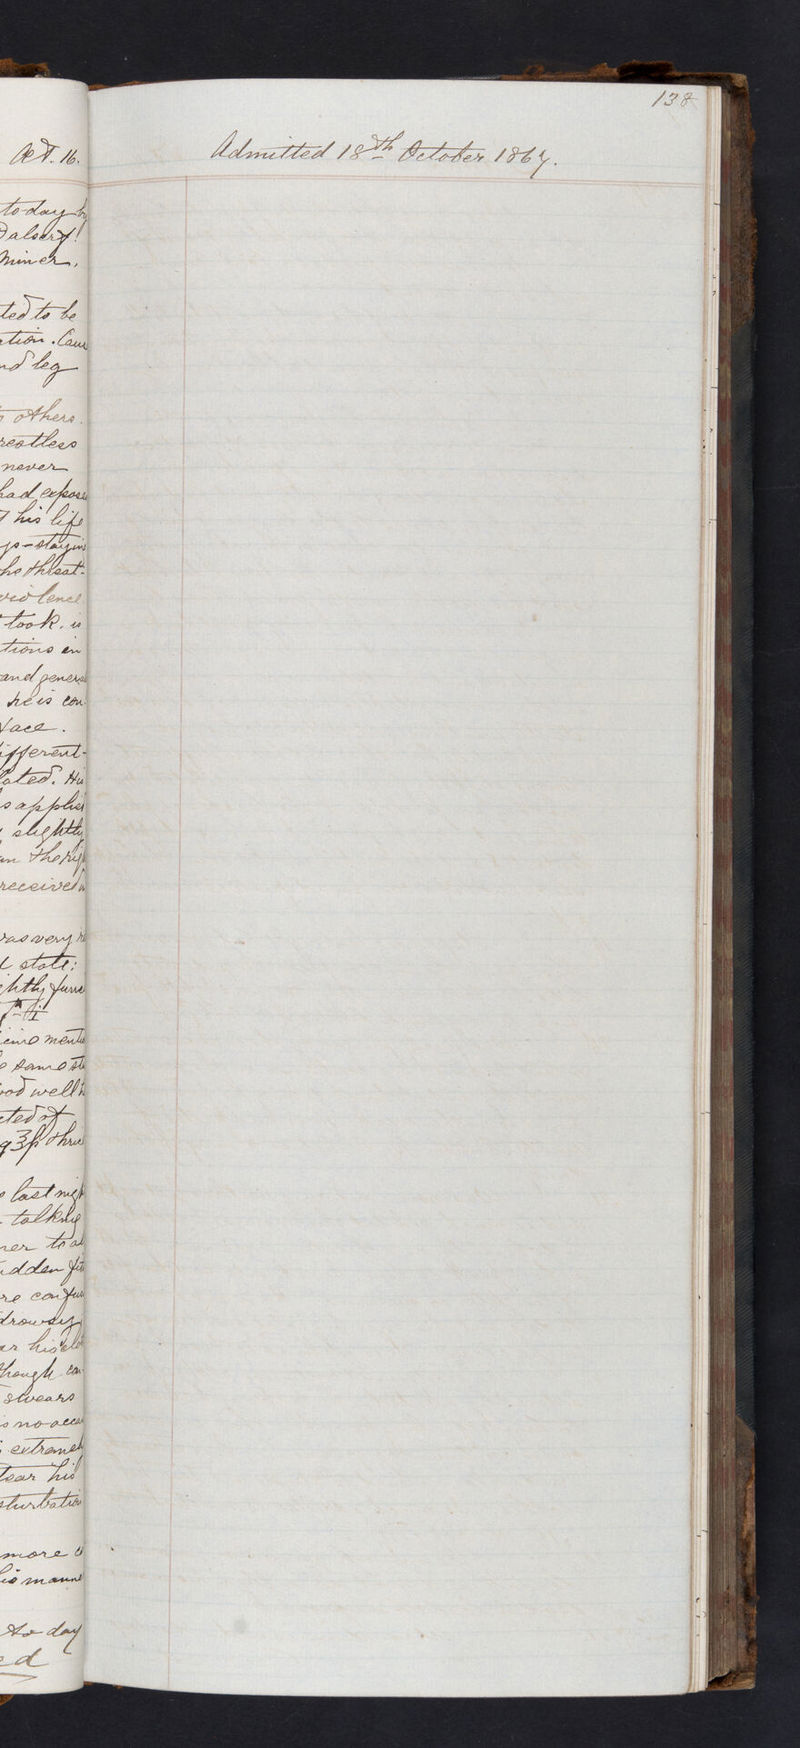 Aet. 16.
today by
Dalserf
Miner.
ted to be
ation. Cau
nd leg
others.
restless
never
had expose
his life
ps-staying
he threat-
violence
took. is
tions in
and genera
he is con
face.
ifferent-
lated. His
s applied
slightly
on the rig
received
was very
state:
ghtly fur
same st
ood well
cted of
last nigh
talking
ner to
udden fit
re confus
drowsy
ar his
though
swears
is no
extremel
tear his
sturbatio
more
his manne
to day
ed
138
Admitted 18th October 1867.